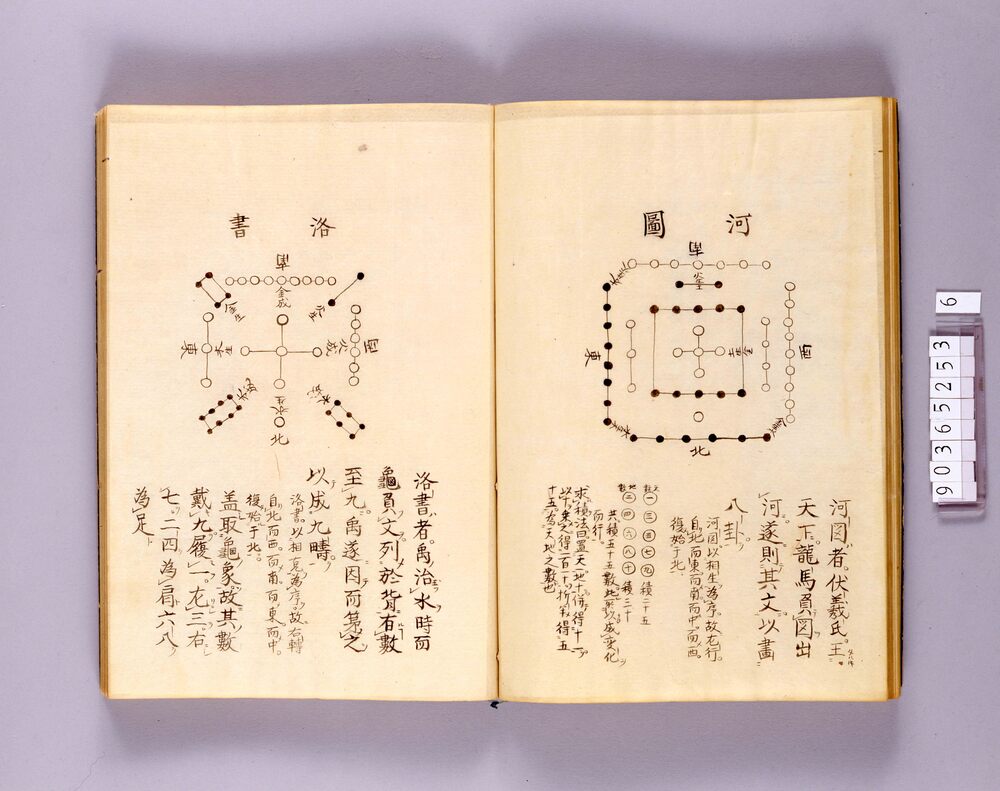 河圖
南
火生
東
西
北
河図者伏羲氏王
天下龍馬負図出
河遂則其文以畫
八卦
河図以相生為序故左行
自北而東而南而中而西
復始于北
天數一三五七九積二十五
地數二四六八十積三十
共積五十五數此所以成變化
而行
求積法曰置天一地十併得十一
以十乘之得一百一十折半得五
十五為天地之數也
洛書
南
金成
火生
金生
東
木生
火成
西
水生
北
洛書者禹治水時而
龜負文列於背有數
至九禹遂因而第之
以成九疇
洛書以相克為序故右轉
自北而西而南而東而中
復始于北
蓋取龜象故其數
戴九履一左三右
七二四為肩六八
為足
90365253
6